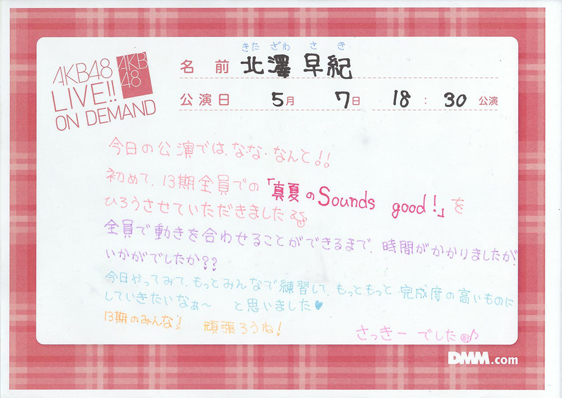 AKB48
LIVE!!
ON DEMAND
AKB
48
きた ざわ さ き
名 前 北澤 早紀
公演日 5月 7日 18:30 公演
今日の公演では、なな・なんと!!
初めて、13期全員での「真夏のSounds good!」を
ひろうさせていただきました
全員で動きを合わせることができるまで、時間がかかりましたが、
いかがでしたか??
今日やってみて、もっとみんなで練習して、もっともっと完成度の高いものに
していきたいなぁ〜 と思いました♥
13期のみんな! 頑張ろうね!
さっきー でした♪
DMM.com